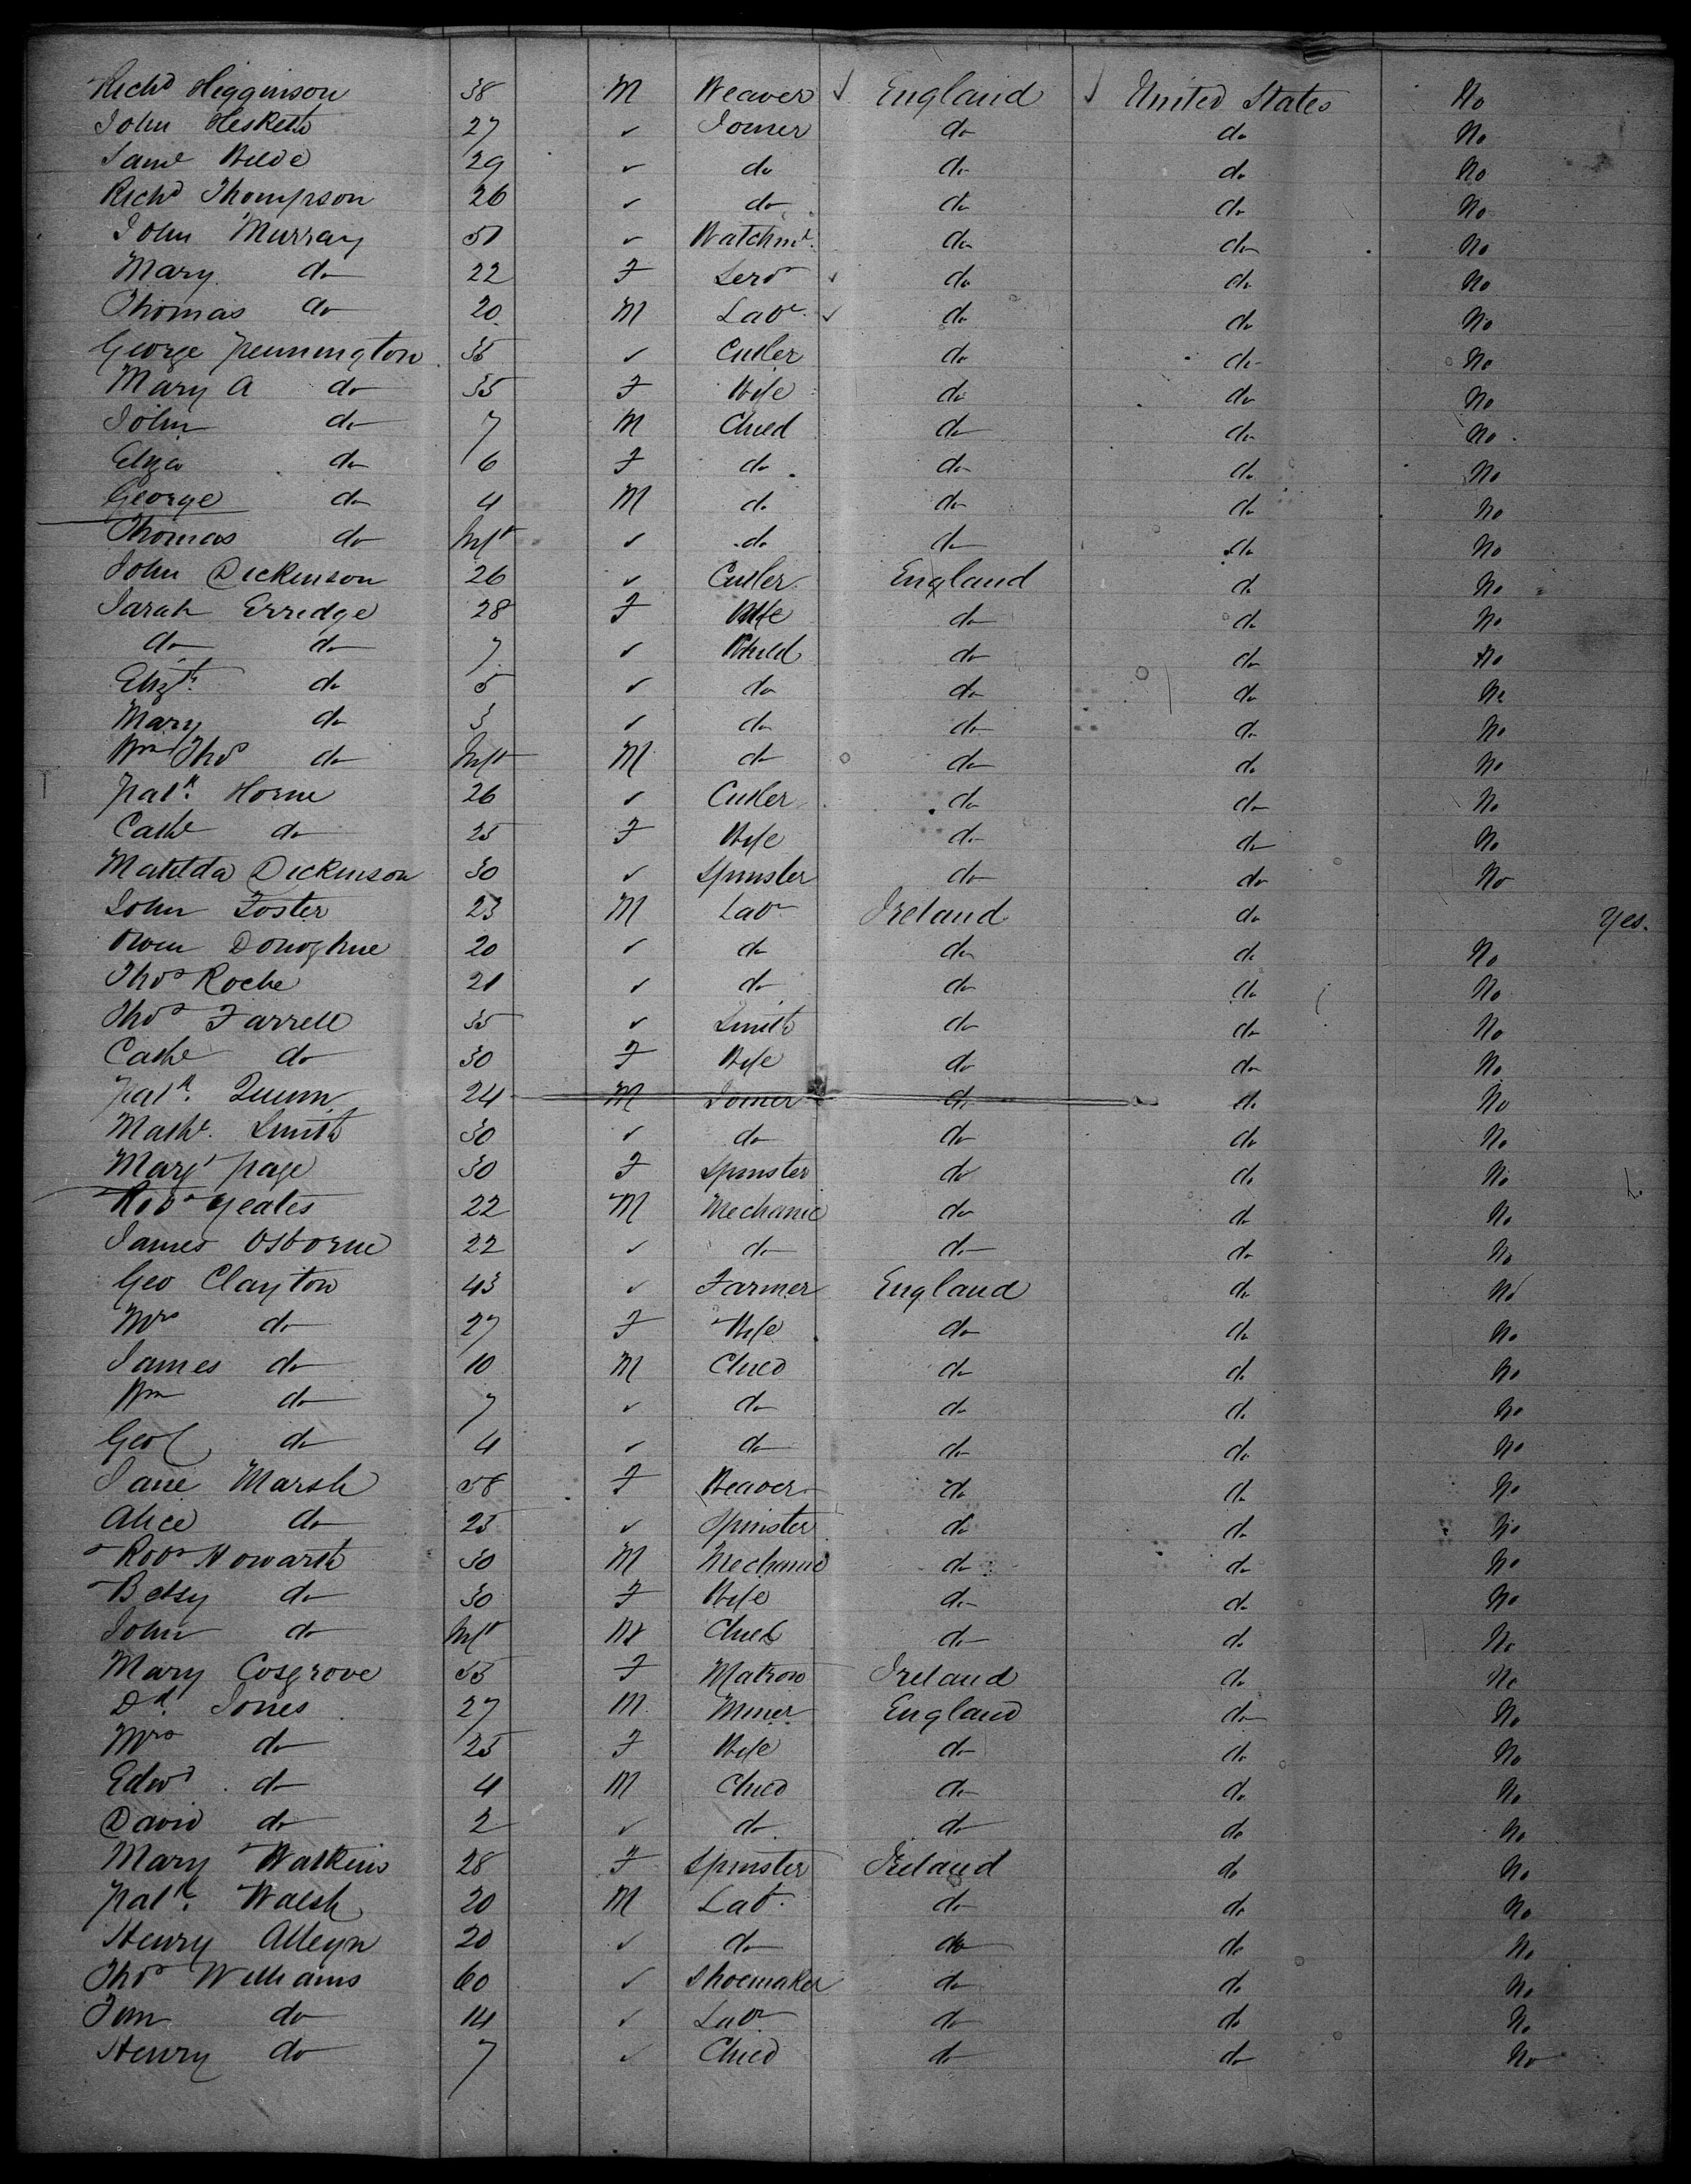 Richd Higginson 38 M Weaver ✓ England ✓ United States No
John Hesketh 27 ✓ Joiner do do No
Saml Wilde 29 ✓ do do do No
Richd Thompson 26 ✓ do do do No
John Murray 51 ✓ do do No
Mary do 22 F Servt ✓ do do No
Thomas do 20 M Labr ✓ do do No
George Pennington 35 ✓ Cutler do do No
Mary A do 35 F Wife do do No
John do 7 M Child do do No
Eliza do 6 F do do do No
George do 4 M do do do No
Thomas do Inft ✓ do do do No
John Dickinson 26 ✓ Cutler England do No
Sarah Erridge 28 F Wife do do No
do do 7 ✓ Child do do No
Elizth do 5 ✓ do do do No
Mary do 3 ✓ do do do No
Wm Thos do Inft M do do do No
Patk Horne 26 ✓ Cutler do do No
Cathe do 25 F Wife do do No
Matilda Dickinson 30 ✓ Spinster do do No
John Foster 23 M Labr Ireland do Yes.
Owen Donoghue 20 ✓ do do do No
Thos Roche 21 ✓ do do do No
Thos Farrell 35 ✓ Smith do do No
Cathe do 30 F Wife do do No
Patk Quinn 24 M Joiner do do No
Mathw Smith 30 ✓ do do do No
Margt Page 30 F Spinster do do No
Robt Yeates 22 M Mechanic do do No
James Osborne 22 ✓ do do do No
Geo Clayton 43 ✓ Farmer England do No
Mrs do 27 F Wife do do No
James do 10 M Child do do No
Wm do 7 ✓ do do do No
Geo do 4 ✓ do do do No
Jane Marsh 58 F Weaver do do No
Alice do 25 ✓ Spinster do do No
Robt Howarth 30 M Mechanic do do No
Betsy do 30 F Wife do do No
John do Inft M Child do do No
Mary Cosgrove 55 F Matron Ireland do No
Dd Jones 27 M Miner England do No
Mrs do 25 F Wife do do No
Edwd do 4 M Child do do No
David do 2 ✓ do do do No
Mary Watkins 28 F Spinster Ireland do No
Patk Walsh 20 M Labr do do No
Henry Alleyn 20 ✓ do do do No
Thos Williams 60 ✓ Shoemaker do do No
do 14 ✓ Labr do do No
Henry do 7 ✓ Child do do No